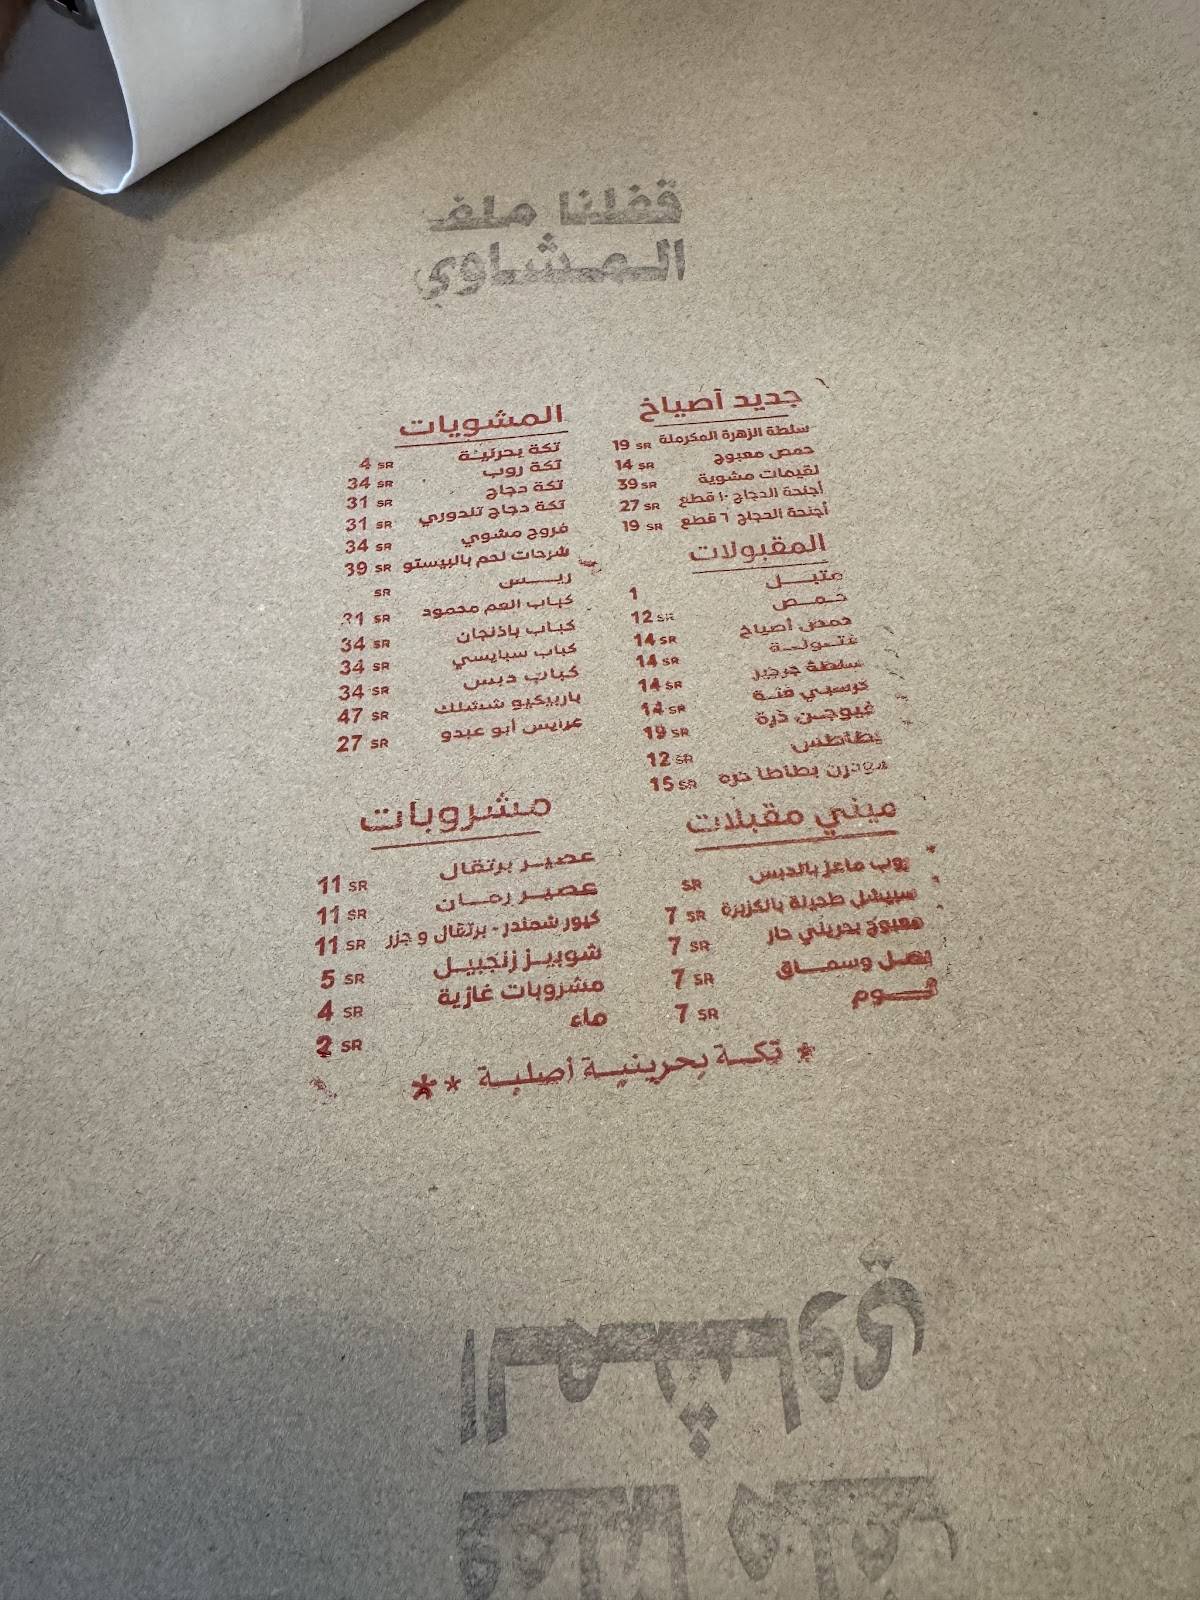 قفلنا ملف
المشاوي
جديد أصياخ
سلطة الزهرة المكرملة 19 SR
حمص معبوج 14 SR
لقيمات مشوية 39 SR
أجنحة الدجاج ١٠ قطع 27 SR
أجنحة الدجاج ٦ قطع 19 SR
المقبولات
متبل 1
حمص 12 SR
حمص أصياخ 14 SR
فتوتة 14 SR
سلطة جرجير 14 SR
كرسبي فتة 14 SR
فيوجن ذرة 19 SR
بطاطس 12 SR
مودرن بطاطا حرة 15 SR
ميني مقبلات
روب ماعز بالدبس SR
سبيشل طحينة بالكزبرة 7 SR
معبوج بحريني حار 7 SR
بصل وسماق 7 SR
ثوم 7 SR
المشويات
تكة بحرينية 4 SR
تكة روب 34 SR
تكة دجاج 31 SR
تكة دجاج تندوري 31 SR
فروج مشوي 34 SR
شرحات لحم بالبيستو 39 SR
ريــس SR
كباب العم محمود 31 SR
كباب باذنجان 34 SR
كباب سبايسي 34 SR
كباب دبس 34 SR
باربيكيو ششلك 47 SR
عرايس أبو عبدو 27 SR
مشروبات
عصير برتقال 11 SR
عصير رمان 11 SR
كيور شمندر - برتقال و جزر 11 SR
شويبز زنجبيل 5 SR
مشروبات غازية 4 SR
ماء 2 SR
* تكة بحرينية أصلية **
المشاوي
قفلنا ملف